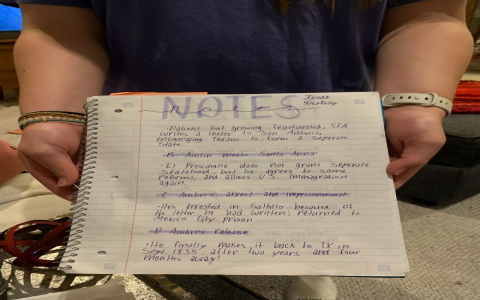 Texas
History
NOTES
-Patient but growing frustrated, SFA
writes a letter to San Antonio
encouraging Texans to form a seperate
state.
B. Austin Meets Santa Anna
-El Presidente does not grant seperate
statehood, but he agrees to some
reforms, and allows U.S. immigration
again.
C. Austin's arrest and imprisonment
-He's arrested in Saltillo because of
the letter he had written; returned to
Mexico City prison
D. Austin's Release
-He finally makes it back to TX in
Sept 1835 after two years and four
months away!